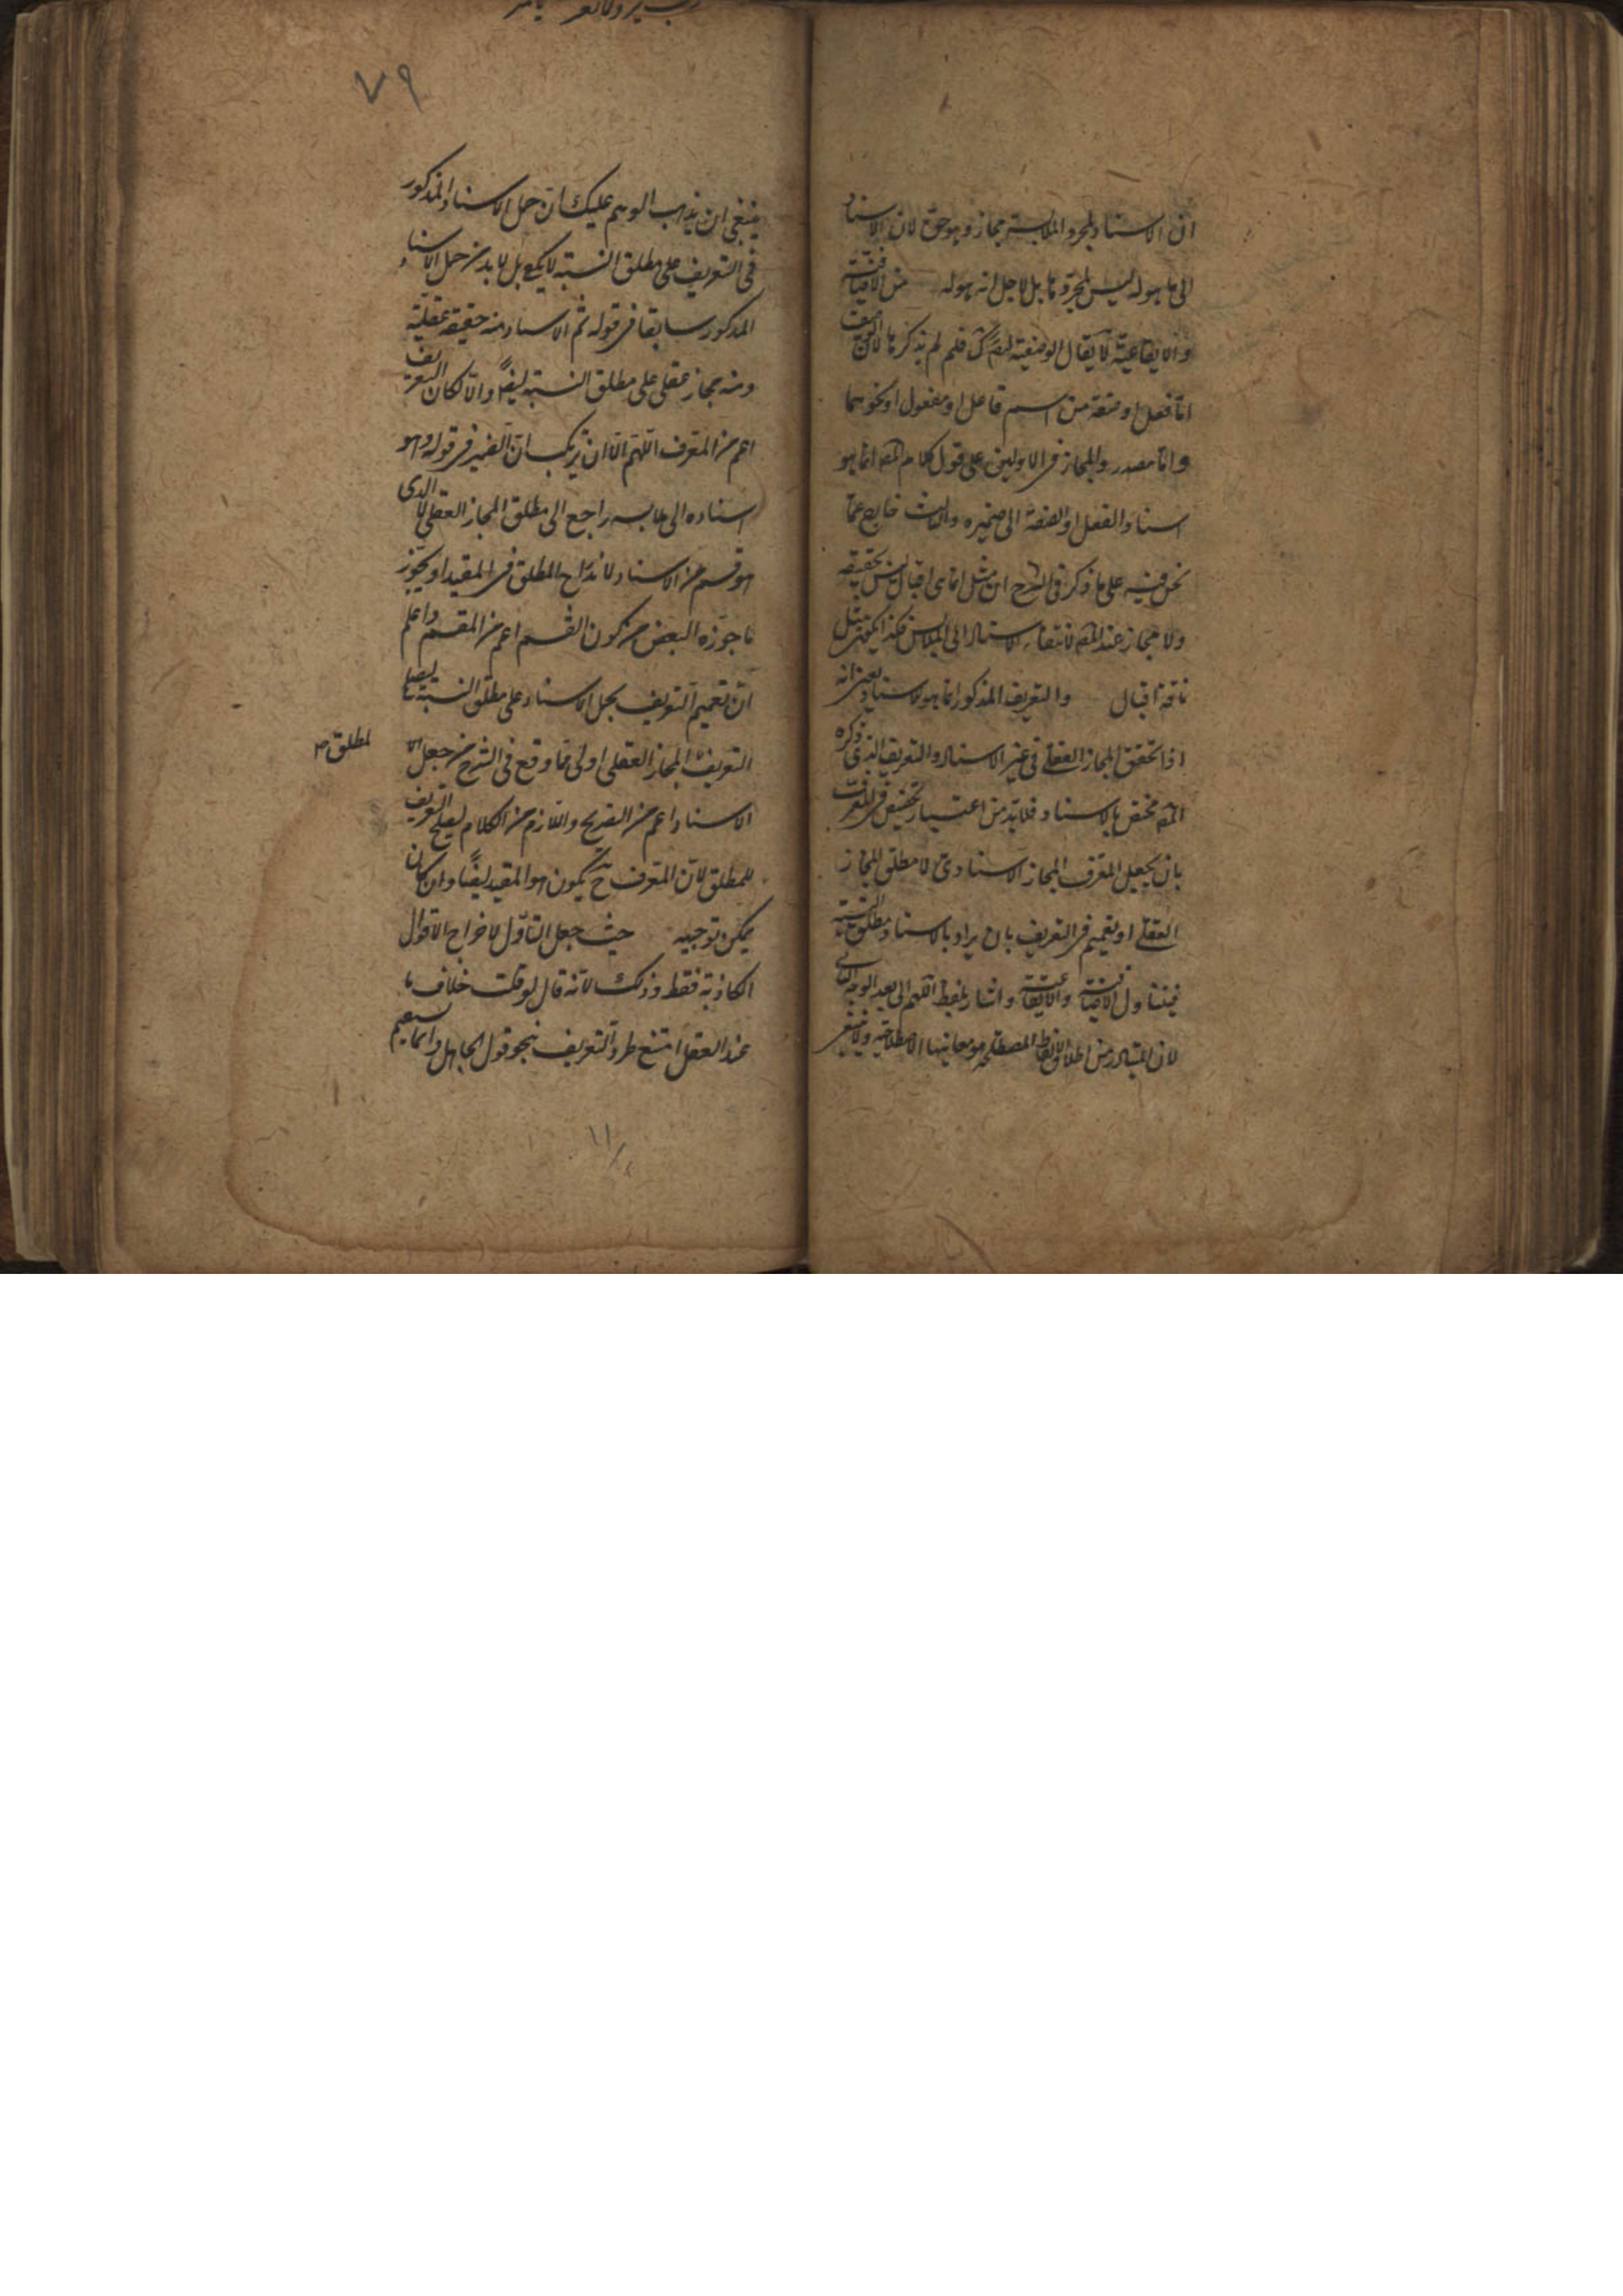 ان الاسناد لمجرد الملابسة مجاز وهو حق لان الاسناد
الى ما هو له ليس لمجردها بل لاجل انه هو له من الاضافية
والايقاعية لا يقال الوصفية ايضا كك فلم لم يذكرها لان الوصف
اما فعل او صفة من اسم فاعل او مفعول او نحوهما
واما مصدر والمجاز في الاولين على قول كلام المص انما هو
اسناد الفعل او الصفة الى ضميره والثالث خارج عما
نحن فيه على ما ذكر في الشرح ان مثل انما هي اقبال ليس بحقيقة
ولا مجاز عند المص لانتفاء الاسناد الى الملابس فكذا يكون مثل
ناقة اقبال والتعريف المذكور انما هو للاسناد يعني انه
اذا تحقق المجاز العقلي في غير الاسناد والتعريف الذي ذكره
المص مختص بالاسناد فلا بد من اعتبار تخصيص في المعرف
بان يجعل المعرف المجاز الاسنادي لا مطلق المجاز
العقلي او تعميم في التعريف بان يراد بالاسناد مطلق النسبة
فيتناول الاضافية والايقاعية واشار بلفظ اللهم الى بعد الوجه الثاني
لان المتبادر من اطلاق الالفاظ المصطلحة هو معانيها الاصطلاحية ولا ينبغي
٧٩
ينبغي ان يذهب الوهم عليك ان حمل الاسناد المذكور
في التعريف على مطلق النسبة لا يكفي بل لا بد من حمل الاسناد
المذكور سابقا في قوله ثم الاسناد منه حقيقة عقلية
ومنه مجاز عقلي على مطلق النسبة ايضا والا لكان التعريف
اعم من المعرف اللهم الا ان يرتكب ان الضمير في قوله وهو
اسناده الى ملابس راجع الى مطلق المجاز العقلي لا الذي
هو قسم من الاسناد لاندراج المطلق في المقيد او يجوز
ما جوزه البعض من كون القسم اعم من المقسم واعلم
ان تعميم التعريف بحمل الاسناد على مطلق النسبة ليصلح
التعريف المجاز العقلي اولى مما وقع في الشرح من جعل
لمطلق صح
الاسناد اعم من الصريح واللازم من الكلام ليصلح التعريف
للمطلق لان المعرف ح يكون هو المقيد ايضا وان كان
يمكن توجيهه حيث جعل التاول لاخراج الاقوال
الكاذبة فقط وذلك لانه قال لو قلت خلاف ما
عند العقل امتنع طرد التعريف بنحو قول الجاهل